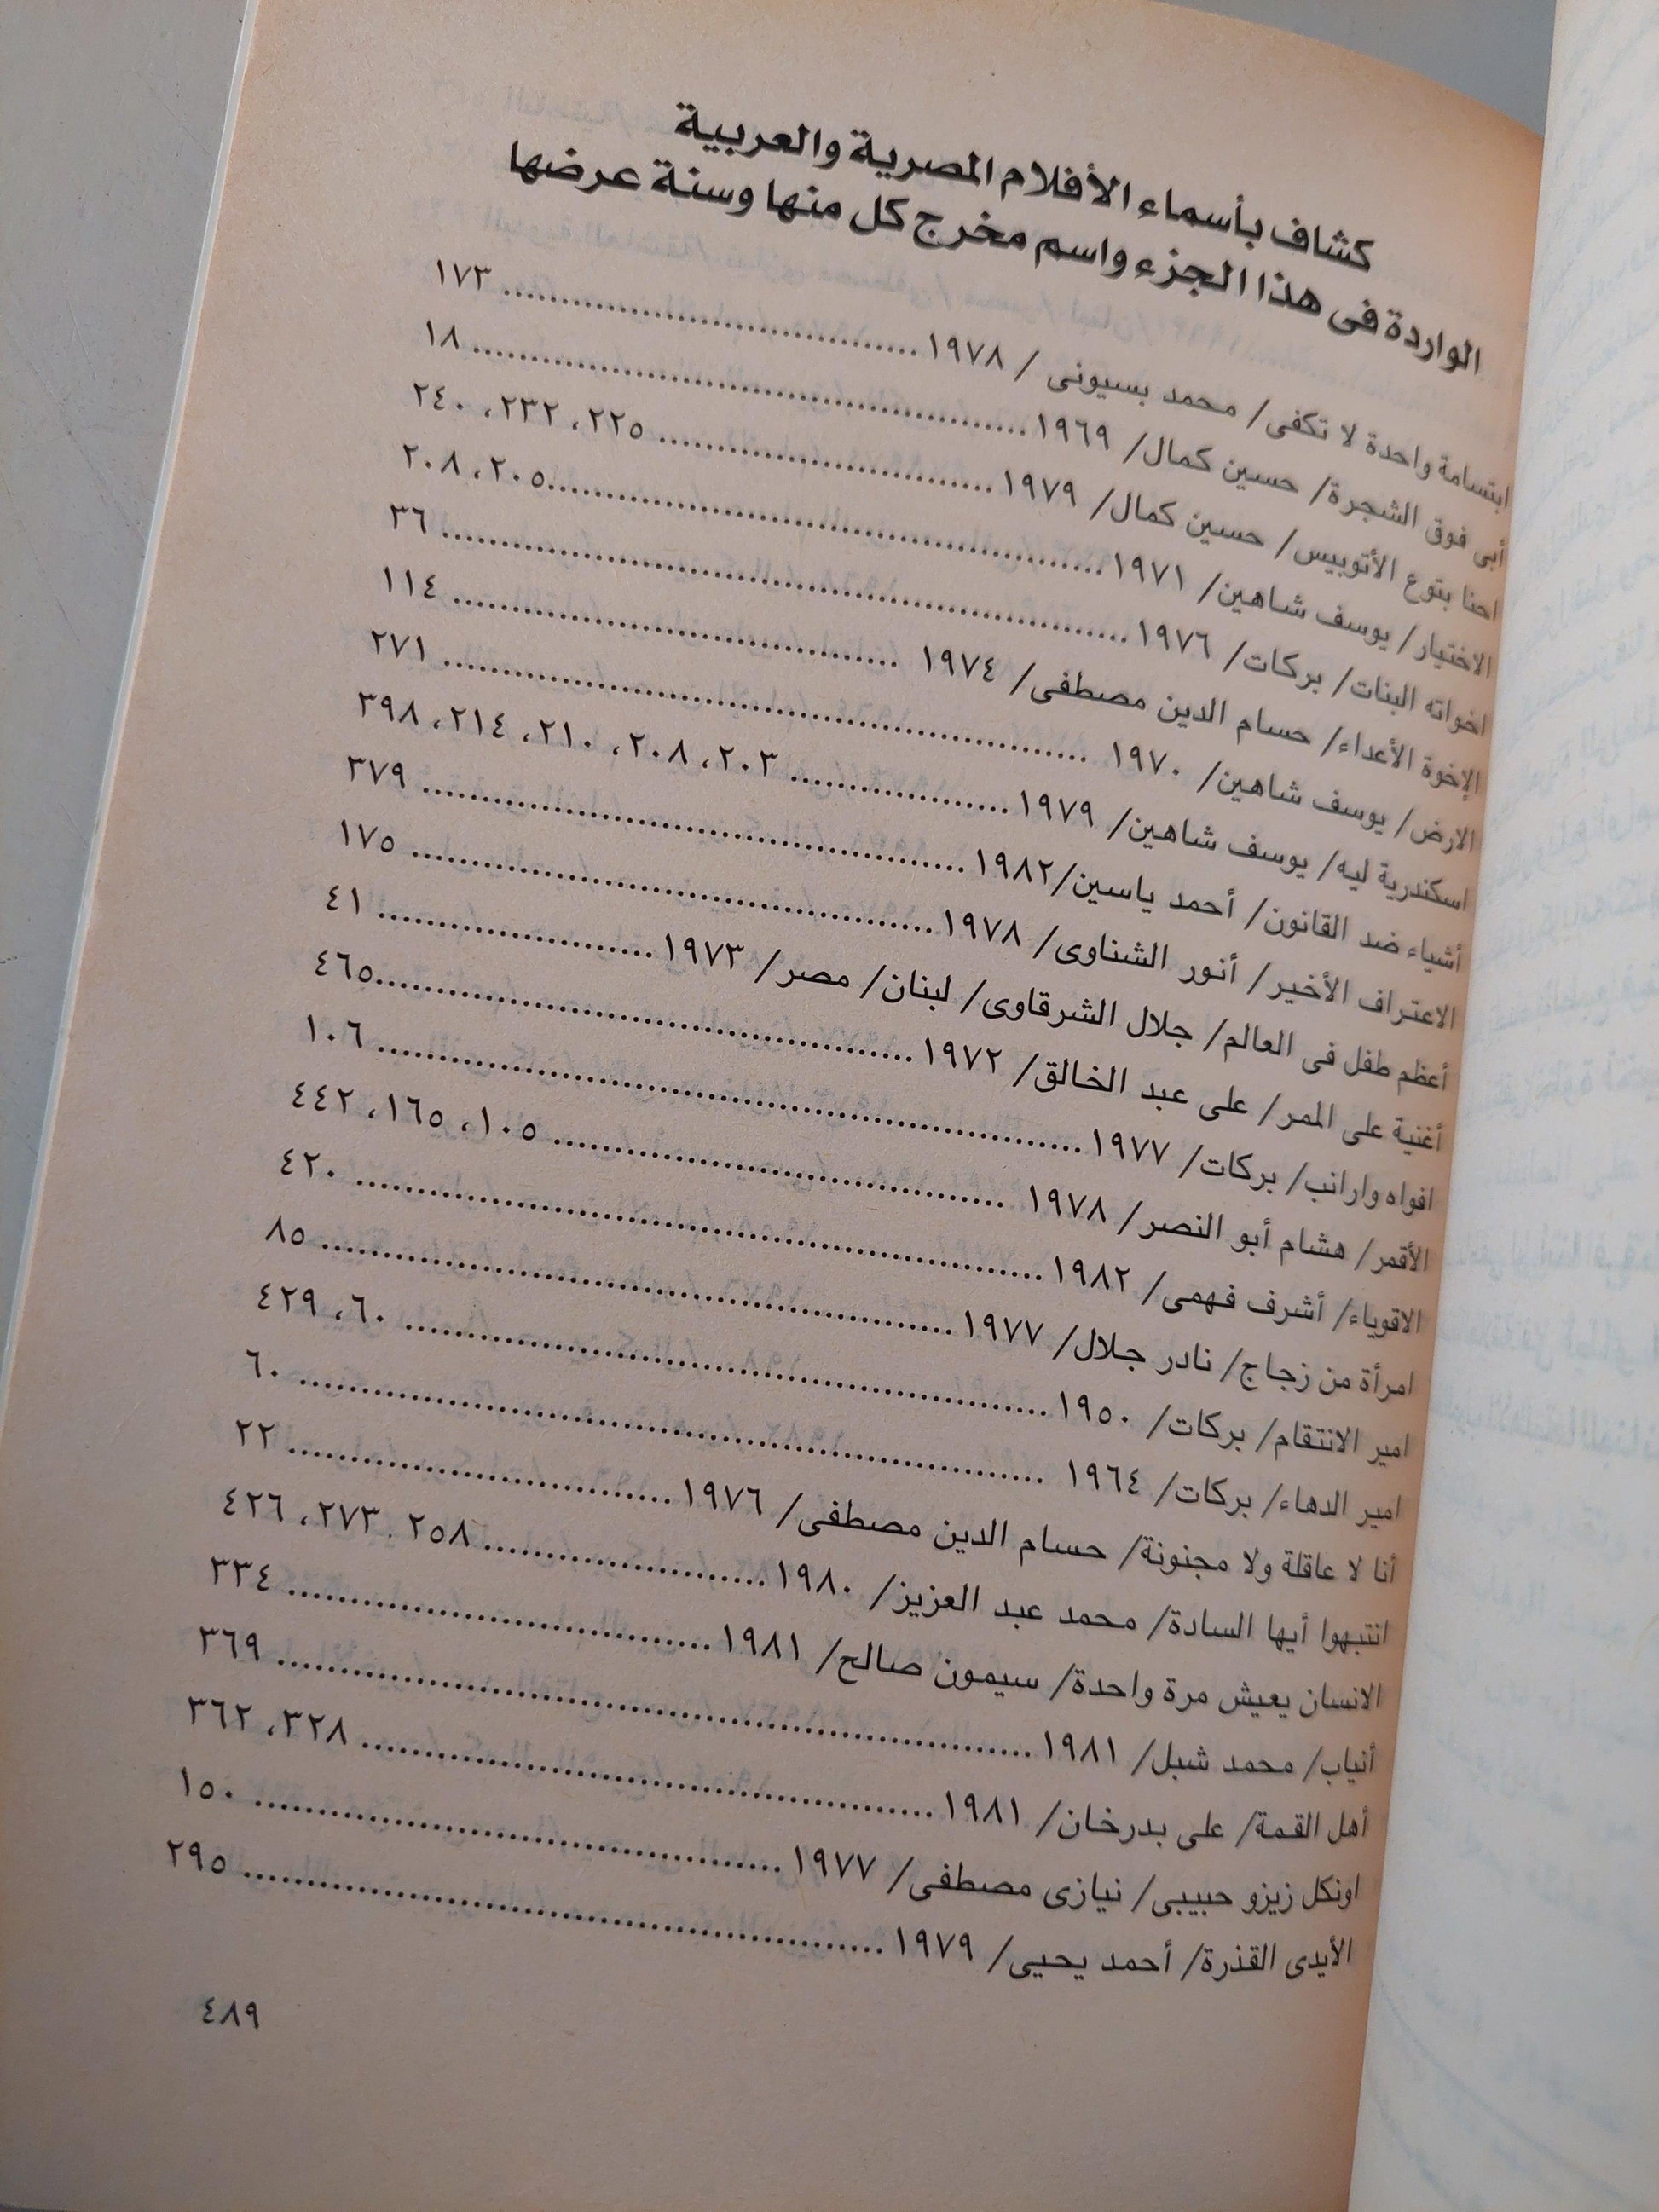 كشاف بأسماء الأفلام المصرية والعربية
الواردة فى هذا الجزء واسم مخرج كل منها وسنة عرضها
ابتسامة واحدة لا تكفى/ محمد بسيونى / ١٩٧٨ ........ ١٧٣
أبى فوق الشجرة/ حسين كمال/ ١٩٦٩ ........ ١٨
احنا بتوع الأتوبيس/ حسين كمال/ ١٩٧٩ ........ ٢٢٥، ٢٣٢، ٢٤٠
الاختيار/ يوسف شاهين/ ١٩٧١ ........ ٢٠٥، ٢٠٨
اخواته البنات/ بركات/ ١٩٧٦ ........ ٣٦
الإخوة الأعداء/ حسام الدين مصطفى/ ١٩٧٤ ........ ١١٤
الارض/ يوسف شاهين/ ١٩٧٠ ........ ٢٧١
اسكندرية ليه/ يوسف شاهين/ ١٩٧٩ ........ ٢٠٣، ٢٠٨، ٢١٠، ٢١٤، ٣٩٨
أشياء ضد القانون/ أحمد ياسين/١٩٨٢ ........ ٣٧٩
الاعتراف الأخير/ أنور الشناوى/ ١٩٧٨ ........ ١٧٥
أعظم طفل فى العالم/ جلال الشرقاوى/ لبنان/ مصر/ ١٩٧٣ ........ ٤١
أغنية على الممر/ على عبد الخالق/ ١٩٧٢ ........ ٤٦٥
افواه وارانب/ بركات/ ١٩٧٧ ........ ١٠٦
الأقمر/ هشام أبو النصر/ ١٩٧٨ ........ ١٠٥، ١٦٥، ٤٤٢
الاقوياء/ أشرف فهمى/ ١٩٨٢ ........ ٤٢٠
امرأة من زجاج/ نادر جلال/ ١٩٧٧ ........ ٨٥
امير الانتقام/ بركات/ ١٩٥٠ ........ ٦٠، ٤٢٩
امير الدهاء/ بركات/ ١٩٦٤ ........ ٦٠
أنا لا عاقلة ولا مجنونة/ حسام الدين مصطفى/ ١٩٧٦ ........ ٢٢
انتبهوا أيها السادة/ محمد عبد العزيز/ ١٩٨٠ ........ ٢٥٨، ٢٧٣، ٤٢٦
الانسان يعيش مرة واحدة/ سيمون صالح/ ١٩٨١ ........ ٣٣٤
أنياب/ محمد شبل/ ١٩٨١ ........ ٣٦٩
أهل القمة/ على بدرخان/ ١٩٨١ ........ ٣٢٨، ٣٦٢
اونكل زيزو حبيبى/ نيازى مصطفى/ ١٩٧٧ ........ ١٥٠
الأيدى القذرة/ أحمد يحيى/ ١٩٧٩ ........ ٢٩٥
٤٨٩